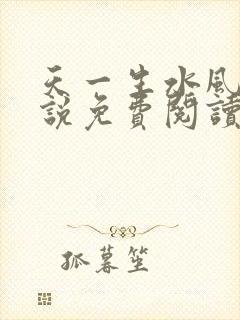 天一生水風
說免費閱讀
孤暮笙